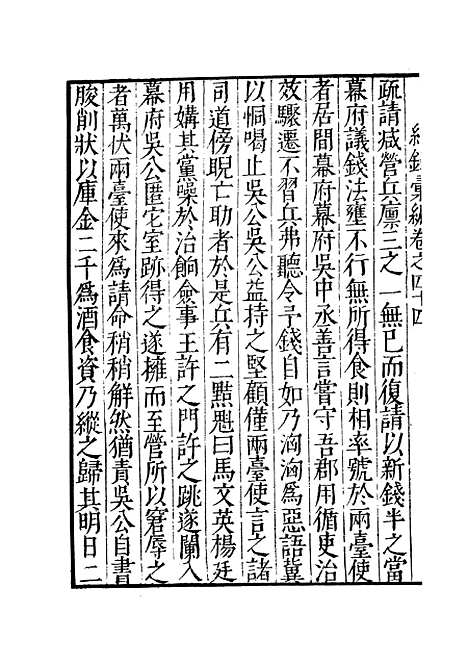 紀錄彙編卷之四十四
疏請減營兵廩三之一無已而復請以新錢半之當
幕府議錢法壅不行無所得食則相率號於兩臺使
者居間幕府幕府吳中丞善言嘗守吾郡用循吏治
效驟遷不習兵弗聽令予錢自如乃洶洶為惡語冀
以恫喝止吳公吳公益持之堅顧僅兩臺使言之諸
司道傍睨亡助者於是兵有二點魁曰馬文英楊廷
用媾其黨噪於治餉僉事王許之門許之跳遂闌入
幕府吳公匿它室跡得之遂擁而至營所以窘辱之
者萬狀兩臺使來為請命稍稍解然猶責吳公自書
朘削狀以庫金二千為酒食資乃縱之歸其明日二